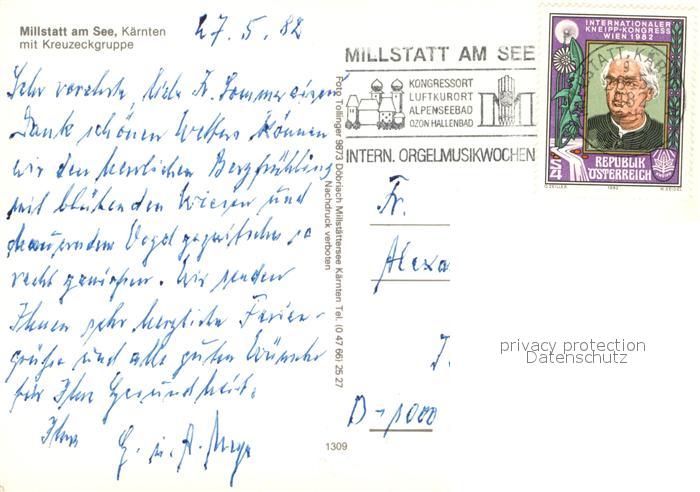 Millstatt am See, Kärnten
mit Kreuzeckgruppe
27.5.82
Sehr verehrte, liebe Fr. Sommereisen
Dank schönen Wetters können
wir den herrlichen Bergfrühling
mit blühenden Wiesen und
Vogelgezwitscher so
recht genießen. Wir senden
Ihnen sehr herzliche Ferien-
grüße und alle guten Wünsche
für Ihre Gesundheit.
Ihre
G. u. A.
Foto Tollinger 9873 Döbriach Millstättersee Kärnten Tel. (0 47 66) 25 27
Nachdruck verboten
1309
MILLSTATT AM SEE
KONGRESSORT
LUFTKURORT
ALPENSEEBAD
OZON HALLENBAD
INTERN. ORGELMUSIKWOCHEN
INTERNATIONALER
KNEIPP-KONGRESS
WIEN 1982
S4
REPUBLIK
ÖSTERREICH
O. ZEILLER
1982
W. SEIDEL
Fr.
Alexa
D-1000
privacy protection
Datenschutz